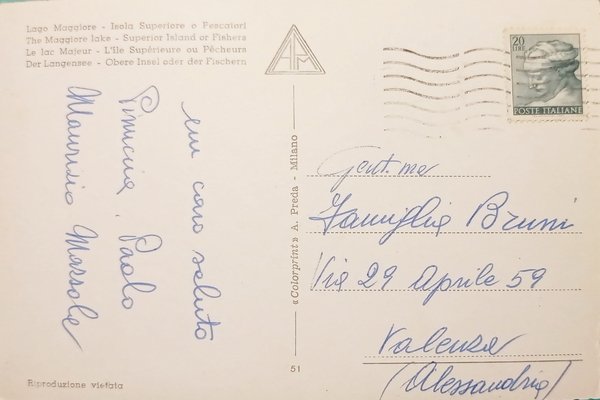 Lago Maggiore - Isola Superiore o Pescatori
The Maggiore lake - Superior Island or Fishers
Le lac Majeur - L'île Supérieure ou Pêcheurs
Der Langensee - Obere Insel oder der Fischern
un caro saluto
Pinuccia, Paolo
Maurizio Massole
APM
«Colorprint» A. Preda - Milano
51
Riproduzione vietata
20
LIRE
POSTE ITALIANE
Gent.ma
Famiglia Bruni
Via 29 Aprile 59
Valenza
(Alessandria)